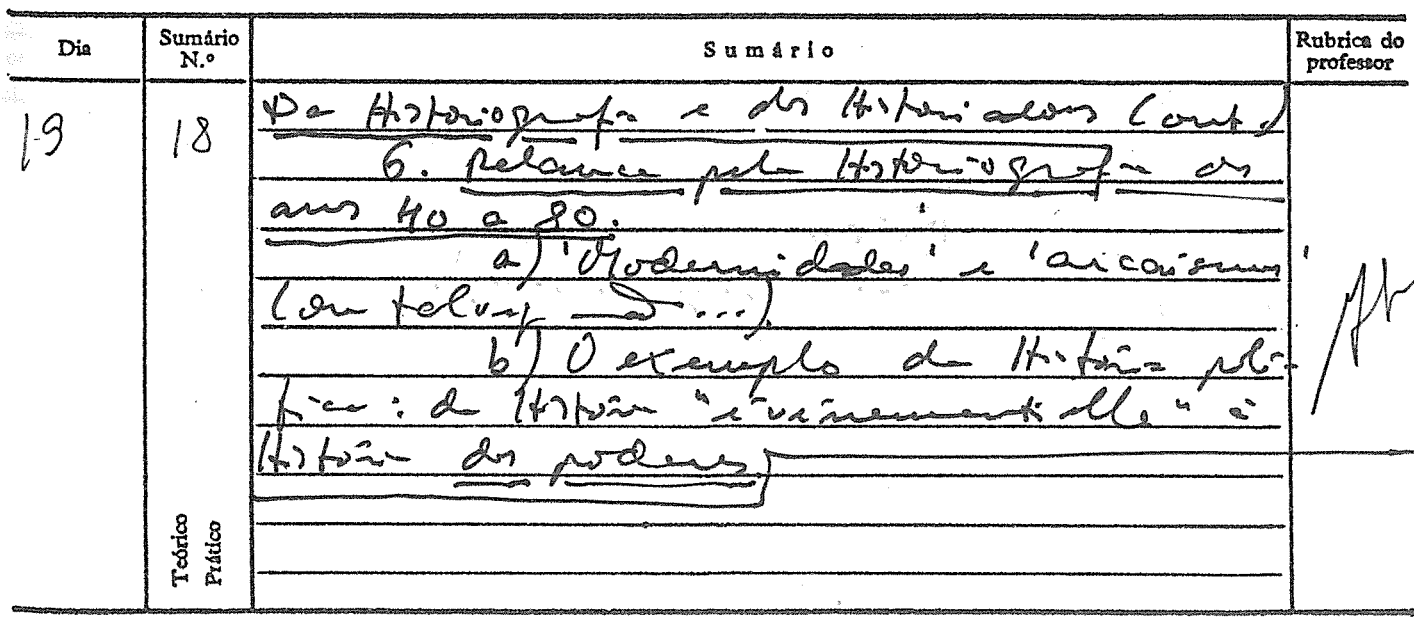 Dia
Sumário N.º
Sumário
Rubrica do professor
19
18
Da Historiografia e dos Historiadores (cont.)
6. Relance pela Historiografia dos
anos 40 a 80.
a) 'Modernidades' e 'arcaísmos'
(ou talvez não...).
b) O exemplo da História polí-
tica: da História "évènementielle" à
História dos poderes.
Teórico
Prático